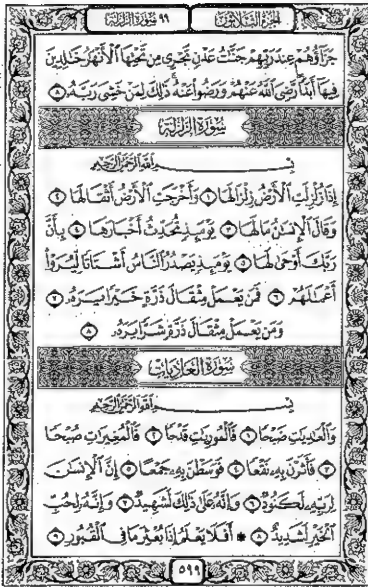 الجزء الثلاثون
٩٩ سورة الزلزلة
جَزَآؤُهُمْ عِندَ رَبِّهِمْ جَنَّٰتُ عَدْنٍ تَجْرِى مِن تَحْتِهَا ٱلْأَنْهَٰرُ خَٰلِدِينَ
فِيهَآ أَبَدًا رَّضِىَ ٱللَّهُ عَنْهُمْ وَرَضُوا۟ عَنْهُ ذَٰلِكَ لِمَنْ خَشِىَ رَبَّهُۥ ٨
سُورَةُ الزَّلْزَلَةِ
بِسْمِ ٱللَّهِ ٱلرَّحْمَٰنِ ٱلرَّحِيمِ
إِذَا زُلْزِلَتِ ٱلْأَرْضُ زِلْزَالَهَا ١ وَأَخْرَجَتِ ٱلْأَرْضُ أَثْقَالَهَا ٢
وَقَالَ ٱلْإِنسَٰنُ مَا لَهَا ٣ يَوْمَئِذٍ تُحَدِّثُ أَخْبَارَهَا ٤ بِأَنَّ
رَبَّكَ أَوْحَىٰ لَهَا ٥ يَوْمَئِذٍ يَصْدُرُ ٱلنَّاسُ أَشْتَاتًا لِّيُرَوْا۟
أَعْمَٰلَهُمْ ٦ فَمَن يَعْمَلْ مِثْقَالَ ذَرَّةٍ خَيْرًا يَرَهُۥ ٧
وَمَن يَعْمَلْ مِثْقَالَ ذَرَّةٍ شَرًّا يَرَهُۥ ٨
سُورَةُ العَادِيَاتِ
بِسْمِ ٱللَّهِ ٱلرَّحْمَٰنِ ٱلرَّحِيمِ
وَٱلْعَٰدِيَٰتِ ضَبْحًا ١ فَٱلْمُورِيَٰتِ قَدْحًا ٢ فَٱلْمُغِيرَٰتِ صُبْحًا
٣ فَأَثَرْنَ بِهِۦ نَقْعًا ٤ فَوَسَطْنَ بِهِۦ جَمْعًا ٥ إِنَّ ٱلْإِنسَٰنَ
لِرَبِّهِۦ لَكَنُودٌ ٦ وَإِنَّهُۥ عَلَىٰ ذَٰلِكَ لَشَهِيدٌ ٧ وَإِنَّهُۥ لِحُبِّ
ٱلْخَيْرِ لَشَدِيدٌ ٨ * أَفَلَا يَعْلَمُ إِذَا بُعْثِرَ مَا فِى ٱلْقُبُورِ ٩
٥٩٩